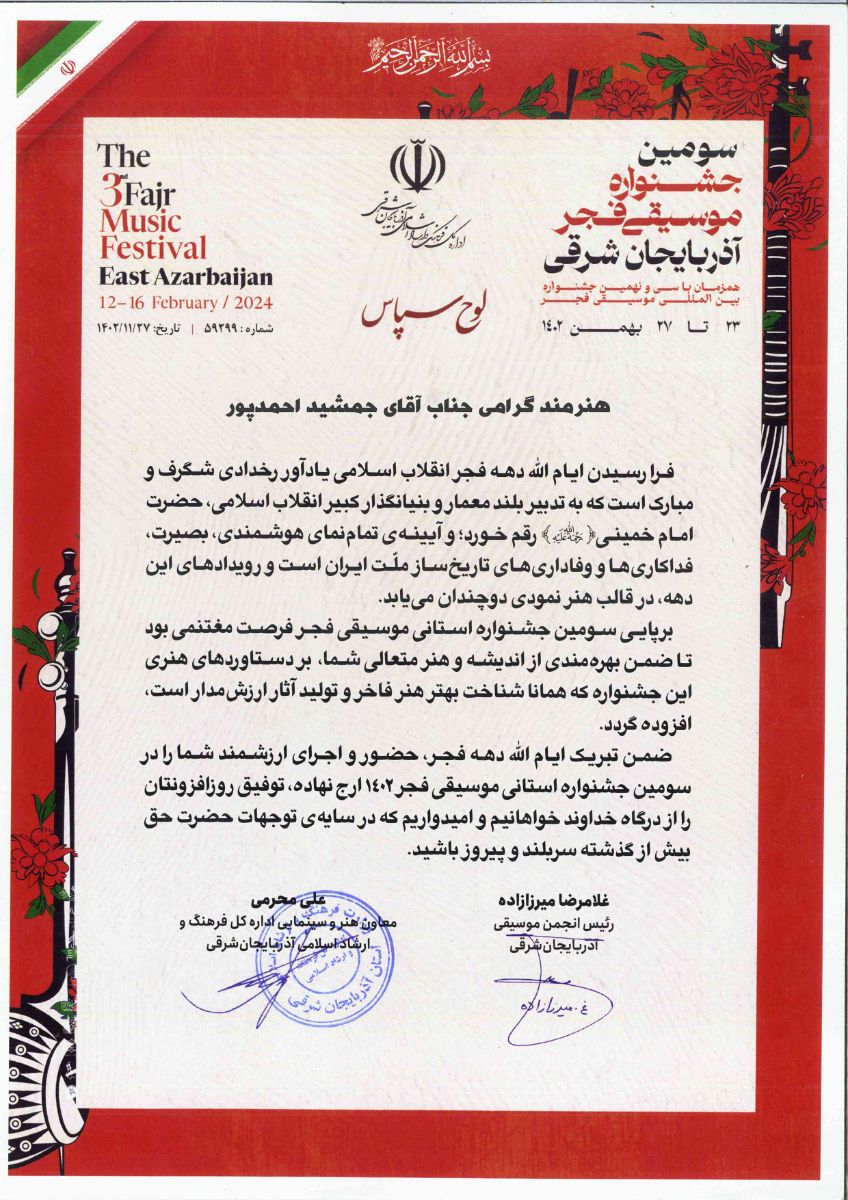 بسم الله الرحمن الرحیم
The
3rd Fajr
Music
Festival
East Azarbaijan
12–16 February / 2024
شماره : ۵۹۲۹۹ | تاریخ: ۱۴۰۲/۱۱/۲۷
اداره کل فرهنگ و ارشاد اسلامی آذربایجان شرقی
لوح سپاس
سومین
جشنواره
موسیقی فجر
آذربایجان شرقی
همزمان با سی و نهمین جشنواره
بین المللی موسیقی فجر
۲۳ تا ۲۷ بهمن ۱۴۰۲
هنرمند گرامی جناب آقای جمشید احمدپور
فرا رسیدن ایام الله دهه فجر انقلاب اسلامی یادآور رخدادی شگرف و
مبارک است که به تدبیر بلند معمار و بنیانگذار کبیر انقلاب اسلامی، حضرت
امام خمینی﴿رحمة الله علیه﴾ رقم خورد؛ و آیینه‌ی تمام‌نمای هوشمندی، بصیرت،
فداکاری‌ها و وفاداری‌های تاریخ‌ساز ملّت ایران است و رویدادهای این
دهه، در قالب هنر نمودی دوچندان می‌یابد.
برپایی سومین جشنواره استانی موسیقی فجر فرصت مغتنمی بود
تا ضمن بهره‌مندی از اندیشه و هنر متعالی شما، بر دستاوردهای هنری
این جشنواره که همانا شناخت بهتر هنر فاخر و تولید آثار ارزش‌مدار است،
افزوده گردد.
ضمن تبریک ایام الله دهه فجر، حضور و اجرای ارزشمند شما را در
سومین جشنواره استانی موسیقی فجر ۱۴۰۲ ارج نهاده، توفیق روزافزونتان
را از درگاه خداوند خواهانیم و امیدواریم که در سایه‌ی توجهات حضرت حق
بیش از گذشته سربلند و پیروز باشید.
غلامرضا میرزازاده
رئیس انجمن موسیقی
آذربایجان‌شرقی
غ. میرزازاده
علی محرمی
معاون هنر و سینمایی اداره کل فرهنگ و
ارشاد اسلامی آذربایجان‌شرقی
استان آذربایجان شرقی